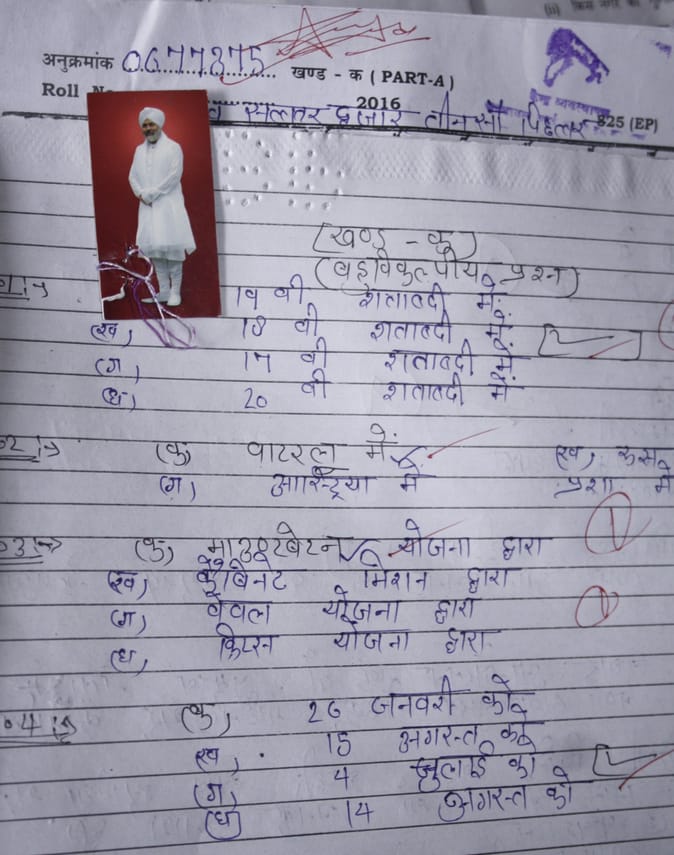 (ii) किस
अनुक्रमांक 0677375
खण्ड - क ( PART-A )
Roll
2016
सत्तर हजार तीन सौ पिहत्तर 825 (EP)
(खण्ड - क)
(बहुविकल्पीय प्रश्न)
19 वी शताब्दी में
(ख) 18 वी शताब्दी में
(ग) 17 वी शताब्दी में
(घ) 20 वी शताब्दी में
02 (क) वाटरलू में (ख) रूस में
(ग) आस्ट्रिया में प्रशा में
1
03 (क) माउण्टबेटन योजना द्वारा
(ख) कैबिनेट मिशन द्वारा
(ग) वेवल योजना द्वारा
1
(घ) क्रिप्स योजना द्वारा
04 (क) 26 जनवरी को
(ख) 15 अगस्त को
(ग) 4 जुलाई को
(घ) 14 अगस्त को